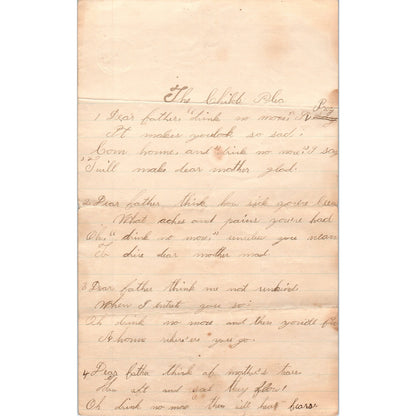 The Childs Plea
1 Dear father, "drink no more" I Pray
It makes you look so sad!
Com home, and "drink no more" I say
T'will make dear mother glad.
2 Dear father think how sick you've been
What aches and pains you've had
Oh! "drink no more,"
Or drive dear mother mad.
3 Dear father think me not unkind
When I entreat you so!
Oh drink no more and then you'll
A home where'er you go.
4 Dear father think of mother's tears
How oft and sad they flow!
Oh drink no more then will her fears